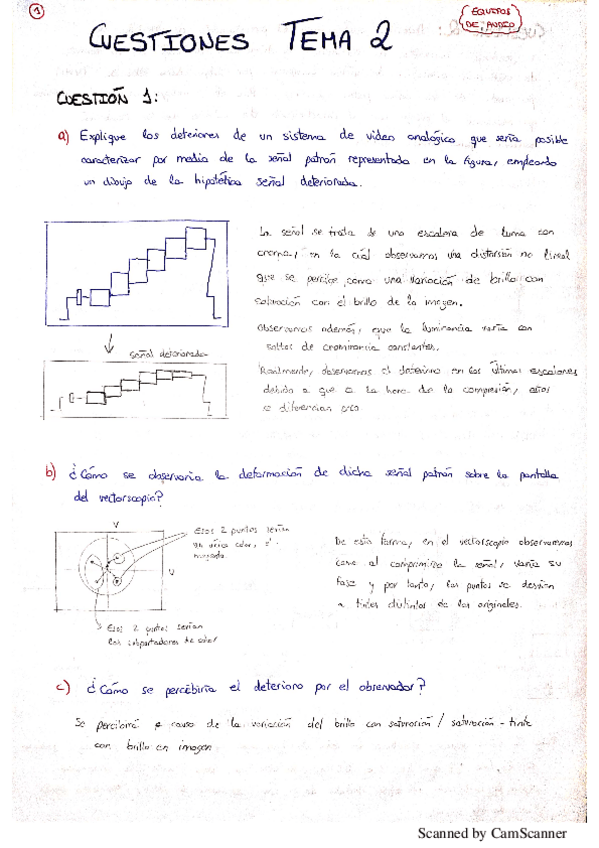 1
EQUIPOS
DE AUDIO
CUESTIONES TEMA 2
CUESTIÓN 1:
a) Explique los deteriores de un sistema de video analógico que sería posible
caracterizar por medio de la señal patrón representada en la figura, empleando
un dibujo de la hipotética señal deteriorada.
La señal se trata de una escalera de luma con
croma, en la cuál observamos una distorsión no lineal
que se percibe como una variación de brillo con
saturación con el brillo de la imagen.
Observamos además, que la luminancia varía con
saltos de crominancia constantes.
señal deteriorada
Realmente, observamos el deterioro en los últimos escalones
debido a que a la hora de la compresión, estos
se diferencian poco
b) ¿Cómo se observaría la deformación de dicha señal patrón sobre la pantalla
del vectorscopio?
V
U
Esos 2 puntos serían
un único color, si
De esta forma, en el vectorscopio observaremos
como al comprimirse la señal, varía su
fase y por tanto, los puntos se desvían
a tintes distintos de los originales.
Esos 2 puntos serían
las subportadoras de color
c) ¿Cómo se percibiría el deterioro por el observador?
Se percibirá a causa de la variación del brillo con saturación / saturación - tinte
con brillo en imagen
Scanned by CamScanner